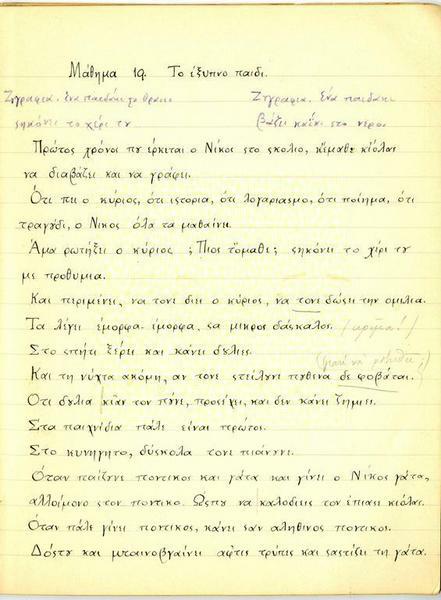 Μάθημα 19. Το έξυπνο παιδί.
Ζυγραφιά. ένα παιδάκι στο θρανίο
σηκόνι το χέρι τυ
Ζυγραφιά. Ένα παιδάκι
βάζι καΐκι στο νερο.
Πρώτος χρόνος πυ έρκεται ο Νίκος στο σκολιο, κ'έμαθε κιόλας
να διαβάζει και να γράφει.
Ότι πει ο κύριος, ότι ιστορία, ότι λογαριασμο, ότι ποίημα, ότι
τραγύδι, ο Νίκος όλα τα μαθαίνει.
Άμα ρωτήξει ο κύριος ; Πιος τόμαθε; σηκόνει το χέρι τυ
με προθυμία.
Και περιμένει, να τονε διει ο κύριος, να τονε δώσει την ομιλία.
Τα λέγει έμορφα-έμορφα, σα μικρος δάσκαλος.
Στο σπήτι ξέρει και κάνει δυλιες.
Και τη νύχτα ακόμη, αν τονε στείλυνι πυθενα δε φοβάται.
Ότι δυλια κ'αν τον πύνε, προσέχει, και δεν κάνει ζημιες.
Στα παιχνίδια πάλε είναι πρώτος.
Στο κυνηγητο, δύσκολα τονε πιάνυνε.
Όταν παίζυνε ποντικος και γάτα και γίνει ο Νίκος γάτα,
αλλοίμονο στον ποντικο. Ώσπυ να καλοδιεις τον έπιασε κιόλας.
Όταν πάλε γίνει ποντικος, κάνει σαν αληθινος ποντικος.
Δόστυ και μπαινοβγαίνει αφ'τις τρύπες και σαστίζει τη γάτα.